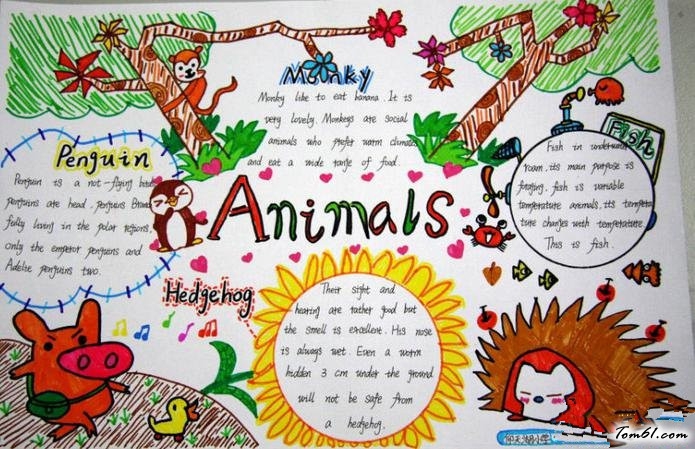 Monky
Monky like to eat banana. It is
very lovely. Monkeys are social
animals who prefer warm climates
and eat a wide range of food.
Penguin
Penguin is a not-flying birds
penguins are head. penguins
fully living in the polar regions,
only the emperor penguins and
Adelie penguins two.
Animals
Fish
Fish in underwater
roam. its main purpose is
foraging. fish is variable
temperature animals. its tempera
ture changes with temperature.
This is fish.
Hedgehog
Their sight and
hearing are rather good but
the smell is excellent. His nose
is always wet. Even a worm
hidden 3 cm under the ground
will not be safe from
a hedgehog.
Tom61.com